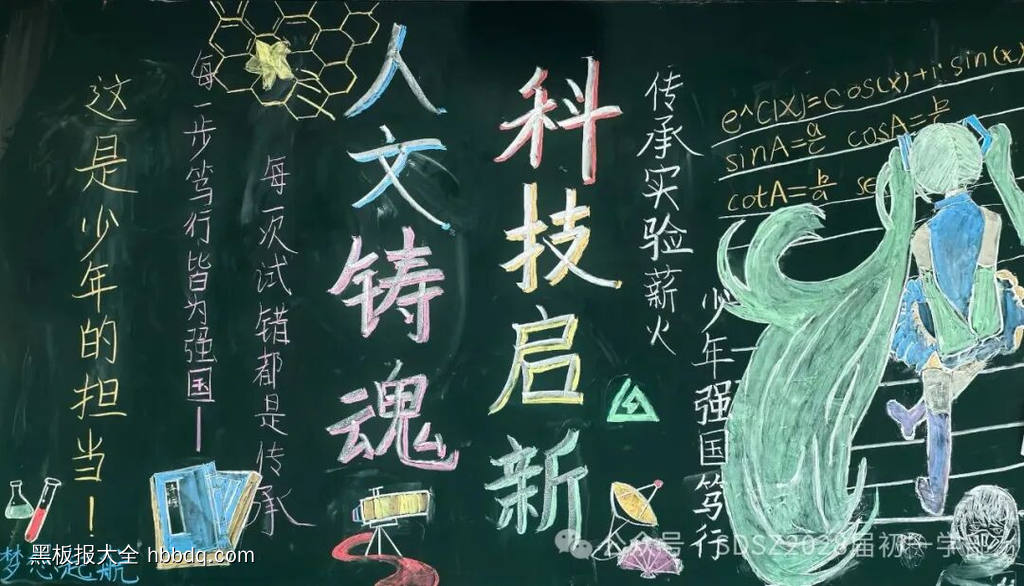 e^C|X)=Cos(x)+i sin(x)
sinA=a/c cosA=b/c
cotA=b/a se
传承实验薪火
少年强国笃行
科技启新
人文铸魂
每一次试错都是传承
每一步笃行皆为强国—
这是少年的担当！
梦想起航
黑板报大全 hbbdq.com
公众号 SDSZ2026届初一学部